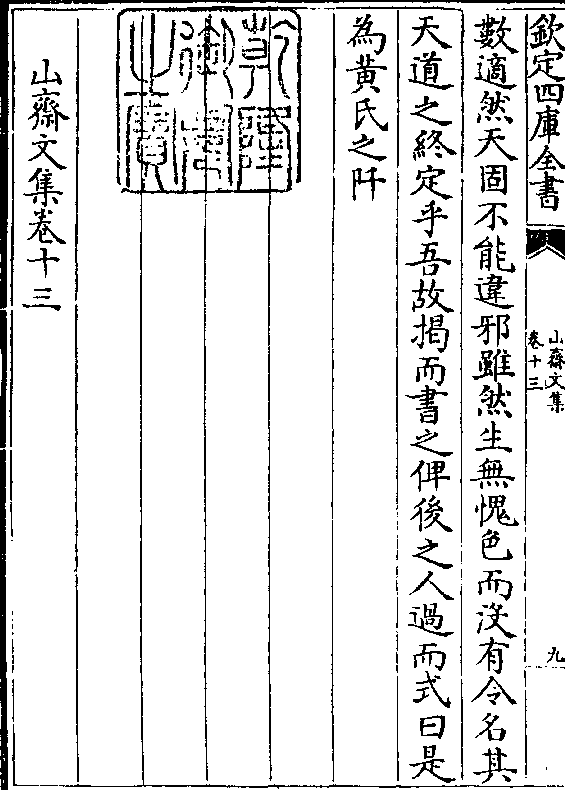 欽定四庫全書
山齋文集
卷十三
九
數適然天固不能違邪雖然生無愧色而沒有令名其
天道之終定乎吾故揭而書之俾後之人過而式曰是
為黃氏之阡
乾隆
御覽
之寶
山齋文集卷十三